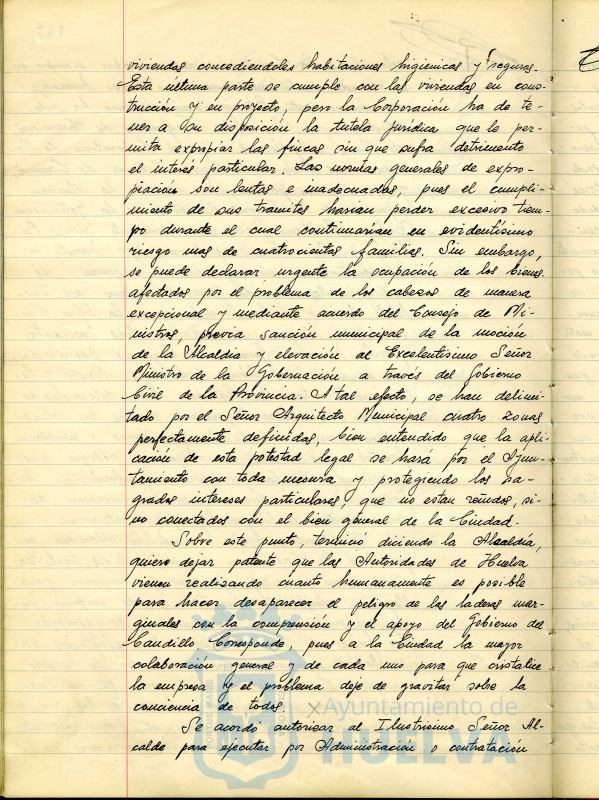 viviendas concediendoles habitaciones higienicas y seguras.
Esta última parte se cumple con las viviendas en cons-
trucción y en proyecto, pero la Corporación ha de te-
ner a su disposición la tutela jurídica que le per-
mita expropiar las fincas sin que sufra detrimento
el interés particular. Las normas generales de expro-
piacion son lentas e inadecuadas, pues el cumpli-
miento de sus tramites harian perder excesivo tiem-
po durante el cual continuarian en evidentísimo
riesgo mas de cuatrocientas familias. Sin embargo,
se puede declarar urgente la ocupación de los bienes
afectados por el problema de los cabezos de manera
excepcional y mediante acuerdo del Consejo de Mi-
nistros, previa sanción municipal de la moción
de la Alcaldia y elevación al Excelentisimo Señor
Ministro de la Gobernación a través del Gobierno
Civil de la Provincia. A tal efecto, se han delimi-
tado por el Señor Arquitecto Municipal cuatro zonas
perfectamente definidas, bien entendido que la apli-
cación de esta potestad legal se hará por el Ayun-
tamiento con toda mesura y protegiendo los sa-
grados intereses particulares, que no estan reñidos, si-
no conectados con el bien general de la Ciudad.
Sobre este punto, terminó diciendo la Alcaldía,
quiero dejar patente que las Autoridades de Huelva
vienen realizando cuanto humanamente es posible
para hacer desaparecer el peligro de las laderas mar-
ginales con la comprensión y el apoyo del Gobierno del
Caudillo Corresponde, pues a la Ciudad la mayor
colaboración general y de cada uno para que cristalice
la empresa y el problema deje de gravitar sobre la
conciencia de todos.
Se acordó autorizar al Ilustrisimo Señor Al-
calde para ejecutar por Administración o contratación
Ayuntamiento de
HUELVA